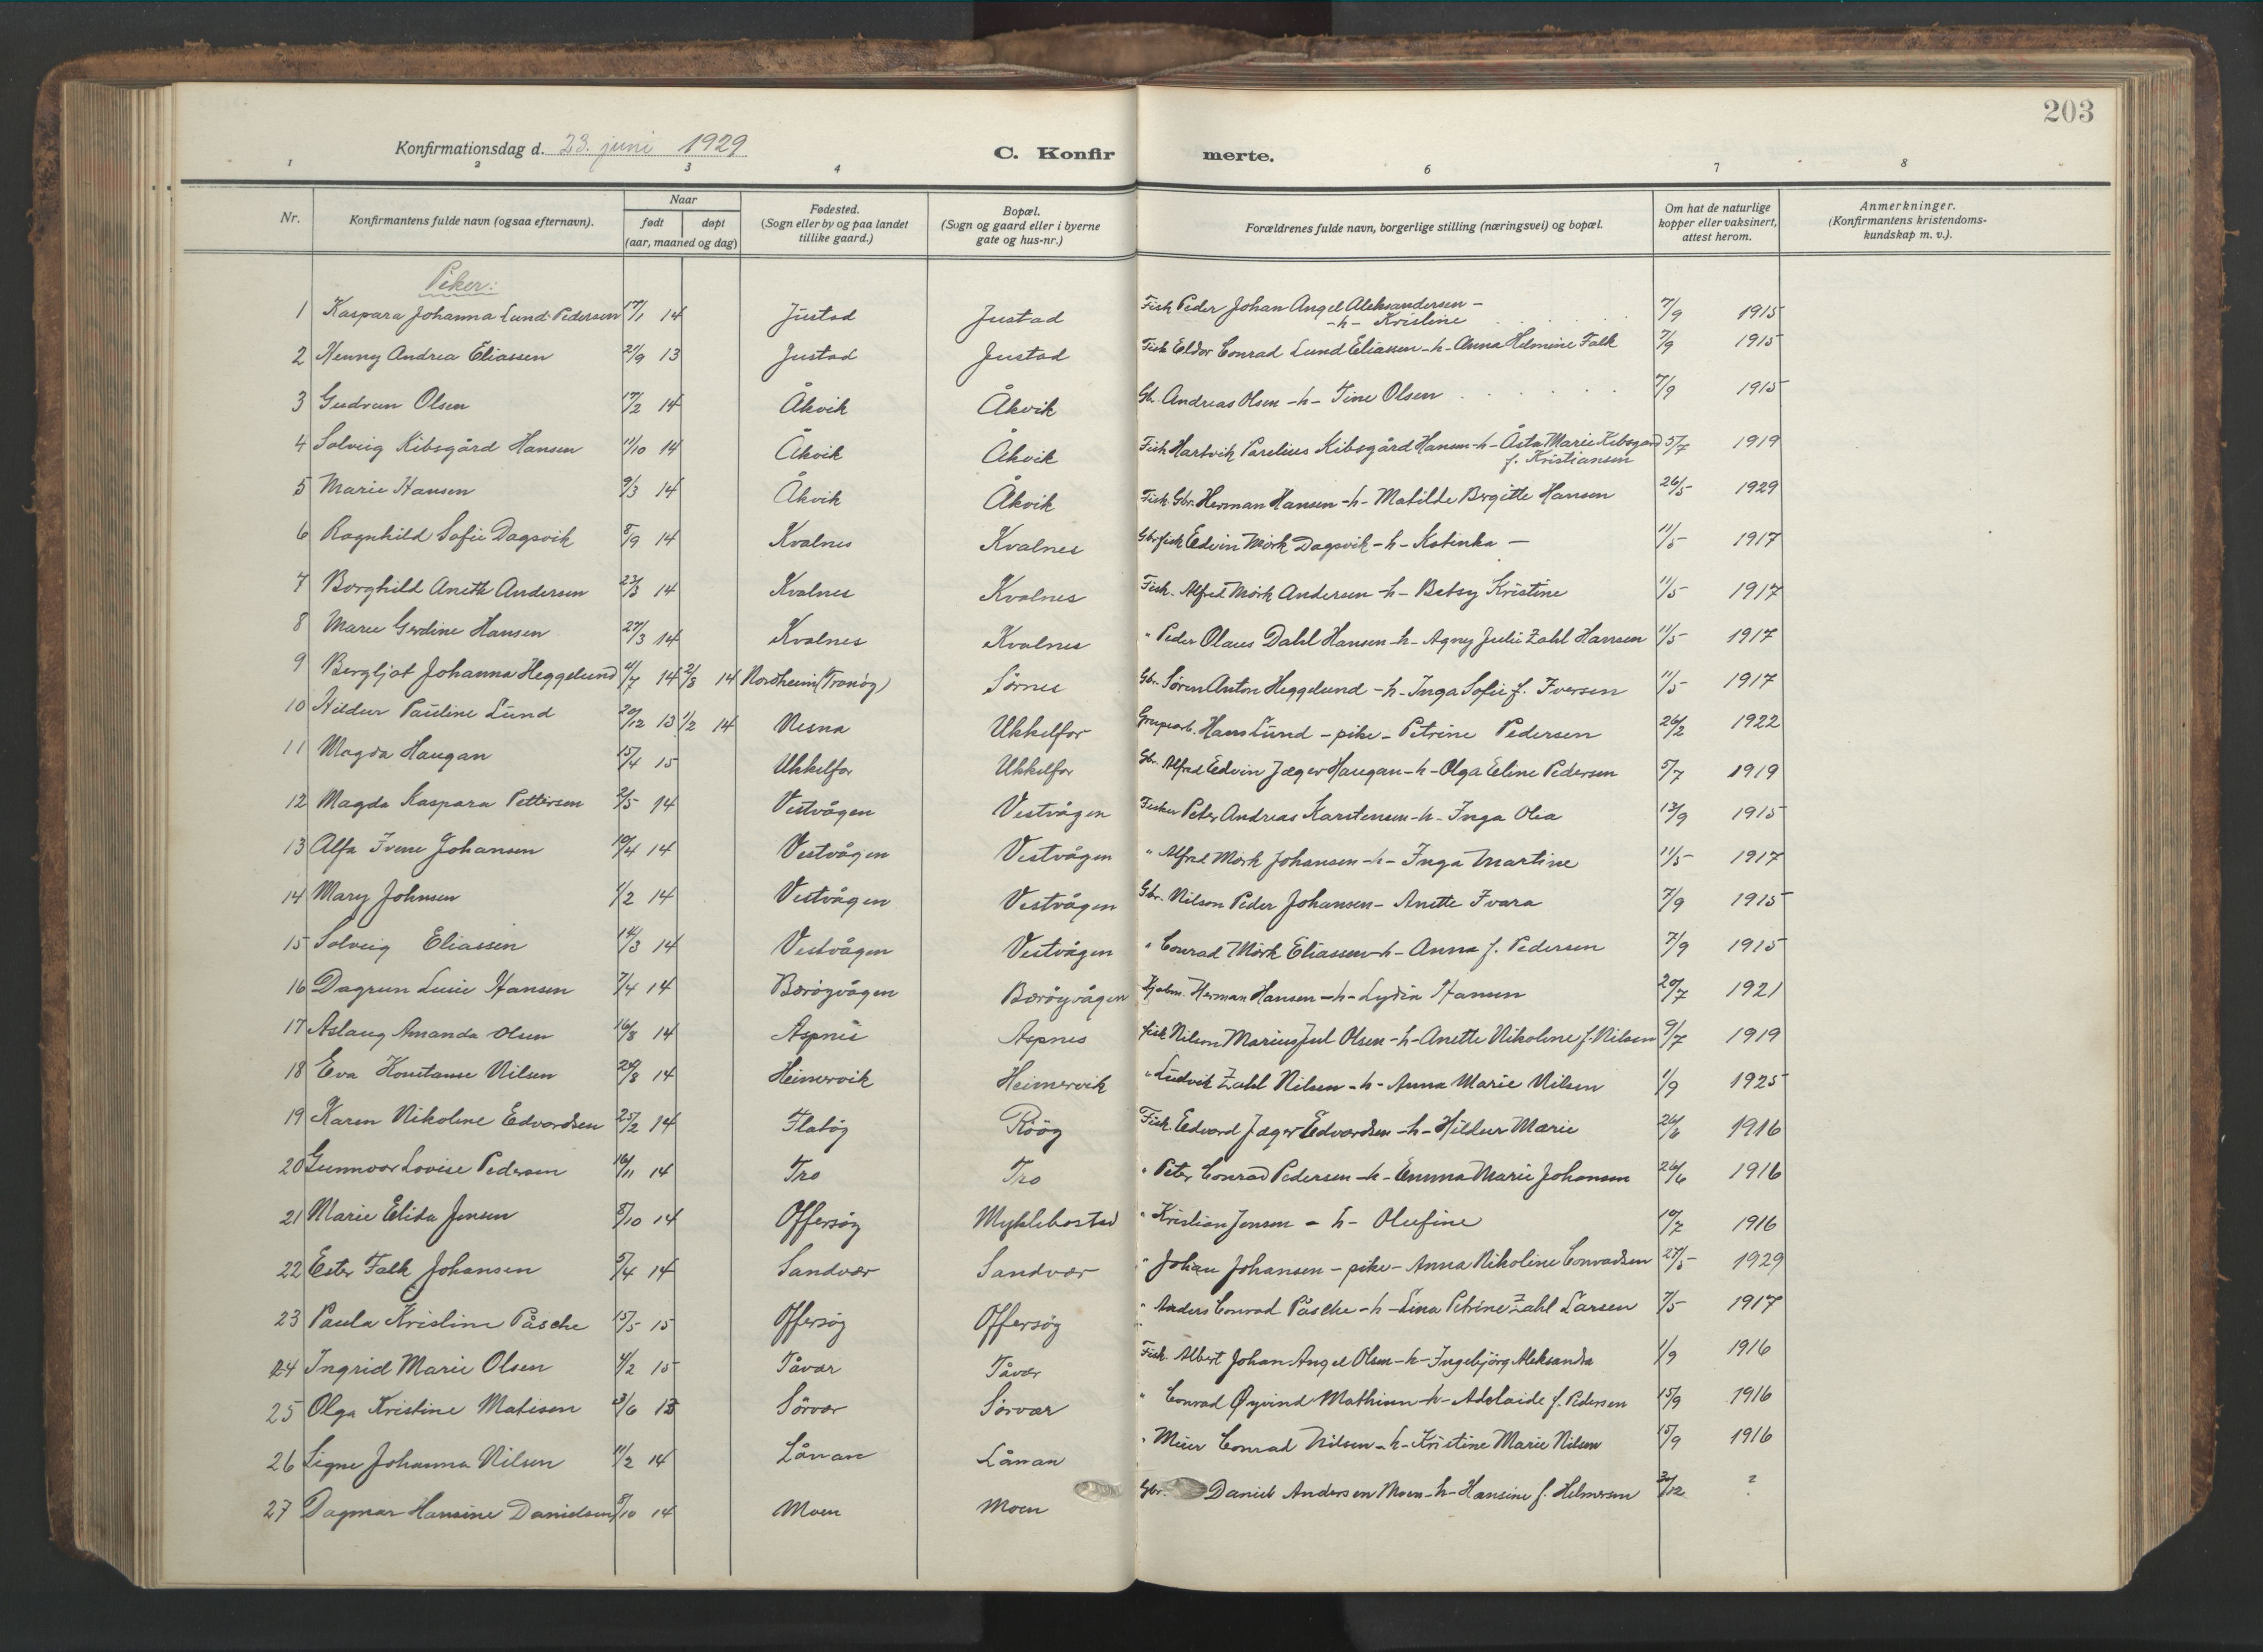 203
Konfirmationsdag d. 23. juni 1929
C. Konfirmerte.
1 2 3 4 6 7 8
Nr.
Konfirmantens fulde navn (ogsaa efternavn).
Naar
født døpt
(aar, maaned og dag)
Fødested.
(Sogn eller by og paa landet
tillike gaard.)
Bopæl.
(Sogn og gaard eller i byerne
gate og hus-nr.)
Forældrenes fulde navn, borgerlige stilling (næringsvei) og bopæl.
Om hat de naturlige
kopper eller vaksinert,
attest herom.
Anmerkninger.
(Konfirmantens kristendoms-
kundskap m. v.).
Piker:
1 Kaspara Johanna Lund Pedersen 17/1 14 Justad Justad Fisk Peder Johan Angel Aleksandersen - -h- Kristine 7/9 1915
2 Henny Andrea Eliassen 21/9 13 Justad Justad Fisk Eldor Conrad Lund Eliassen -h- Anna Helmine Falk 7/9 1915
3 Gudrun Olsen 17/2 14 Åkvik Åkvik Gb. Andreas Olsen -h- Tine Olsen 7/9 1915
4 Solveig Kibsgård Hansen 11/10 14 Åkvik Åkvik Fisk Hartvik Parelius Kibsgård Hansen -h- Åsta Marie Kibsgård f. Kristiansen 5/7 1919
5 Marie Hansen 9/3 14 Åkvik Åkvik Fisk Gbr. Herman Hansen -h- Matilde Bergitte Hansen 26/5 1929
6 Ragnhild Sofie Dagsvik 8/9 14 Kvalnes Kvalnes Gbr fisk Edvin Mørk Dagsvik -h- Katinka - 11/5 1917
7 Borghild Aneth Andersen 23/3 14 Kvalnes Kvalnes Fisk. Alfred Mørk Andersen -h- Betsy Kristine 11/5 1917
8 Marie Gerdine Hansen 27/3 14 Kvalnes Kvalnes " Peder Olaus Dahl Hansen -h- Agny Julie Zahl Hansen 11/5 1917
9 Bergljot Johanna Heggelund 4/7 14 2/8 14 Nordheim (Tranøy) Sørnes Gbr. Søren Anton Heggelund -h- Inga Sofie f. Iversen 11/5 1917
10 Hildur Pauline Lund 20/12 13 1/2 14 Nesna Ukkelfor Hans Lund - pike - Petrine Pedersen 26/2 1922
11 Magda Haugan 15/4 15 Ukkelfor Ukkelfor Gbr. Alfred Edvin Jæger Haugan -h- Olga Eline Pedersen 5/7 1919
12 Magda Kaspara Pettersen 2/5 14 Vestvågen Vestvågen Fisker Peter Andreas Karstensen -h- Inga Olea 13/9 1915
13 Alfa Irene Johansen 10/4 14 Vestvågen Vestvågen " Alfred Mørk Johansen -h- Inga Martine 11/5 1917
14 Mary Johnsen 1/2 14 Vestvågen Vestvågen Gbr. Nilson Peder Johansen - Anette Ivara 7/9 1915
15 Solveig Eliassen 14/3 14 Vestvågen Vestvågen " Conrad Mørk Eliassen -h- Anna f. Pedersen 7/9 1915
16 Dagrun Lusie Hansen 7/4 14 Barøyvågen Barøyvågen Herman Hansen -h- Lydia Hansen 20/7 1921
17 Aslaug Amanda Olsen 16/8 14 Aspnes Aspnes fisk Nilson Marius Jul Olsen -h- Anette Nikoline f. Nilsen 9/7 1919
18 Eva Konstanse Nilsen 20/8 14 Heimervik Heimervik " Ludvik Zahl Nilsen -h- Anna Marie Nilsen 1/9 1925
19 Karen Nikoline Edvardsen 25/2 14 Flatøy Røøy Fisk. Edvard Jæger Edvardsen -h- Hildur Marie 26/6 1916
20 Gunnvor Lovise Pedersen 16/11 14 Tro Tro " Peter Conrad Pedersen -h- Emma Marie Johansen 26/6 1916
21 Marie Elida Jensen 8/10 14 Offersøy Myklebostad " Kristian Jensen -h- Olufine 10/7 1916
22 Ester Falk Johansen 5/4 14 Sandvær Sandvær " Johan Johansen - pike - Anna Nikoline Conradsen 27/5 1929
23 Paula Kristine Påsche 15/5 15 Offersøy Offersøy " Anders Conrad Påsche -h- Lina Petrine Zahl Larsen 7/5 1917
24 Ingrid Marie Olsen 4/2 15 Tåvær Tåvær Fisk. Albert Johan Angel Olsen -h- Ingebjørg Aleksandra 1/9 1916
25 Olga Kristine Matisen 3/6 13 Sørvær Sørvær " Conrad Øyvind Mathisen -h- Adelaide f. Pedersen 15/9 1916
26 Signe Johanna Nilsen 11/2 14 Lånan Lånan " Meier Conrad Nilsen -h- Kristine Marie Nilsen 15/9 1916
27 Dagmar Hansine Danielsen 8/10 14 Moen Moen Gbr. Daniel Andersen Moen -h- Hansine f. Helmersen 30/12 ?